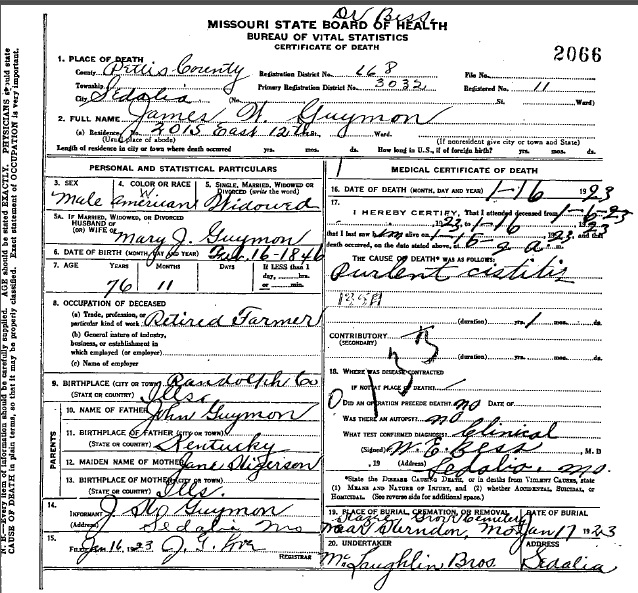 Dr Bess.
MISSOURI STATE BOARD OF HEALTH
BUREAU OF VITAL STATISTICS
CERTIFICATE OF DEATH
2066
1. PLACE OF DEATH
County Pettis County Registration District No. 668 File No.
Township Primary Registration District No. 3032 Registered No. 11
City Sedalia (No. St. Ward)
2. FULL NAME James W. Guymon
(a) Residence. No. 2015 East 12th St. Ward.
(Usual place of abode) (If nonresident give city or town and State)
Length of residence in city or town where death occurred yrs. mos. ds. How long in U.S., if of foreign birth? yrs. mos. ds.
PERSONAL AND STATISTICAL PARTICULARS
3. SEX 4. COLOR OR RACE 5. SINGLE, MARRIED, WIDOWED OR DIVORCED (write the word)
Male W. American Widowed
5A. IF MARRIED, WIDOWED, OR DIVORCED
HUSBAND OF
(OR) WIFE OF Mary J. Guymon
6. DATE OF BIRTH (MONTH, DAY AND YEAR) 16-1846
7. AGE YEARS MONTHS DAYS If LESS than 1 day, hrs. or min.
76 11
8. OCCUPATION OF DECEASED
(a) Trade, profession, or particular kind of work Retired Farmer
(b) General nature of industry, business, or establishment in which employed (or employer)
(c) Name of employer
9. BIRTHPLACE (CITY OR TOWN) Randolph Co
(STATE OR COUNTRY) Ills.
PARENTS
10. NAME OF FATHER John Guymon
11. BIRTHPLACE OF FATHER (CITY OR TOWN)
(STATE OR COUNTRY) Kentucky
12. MAIDEN NAME OF MOTHER Jane
13. BIRTHPLACE OF MOTHER (CITY OR TOWN)
(STATE OR COUNTRY) Ills.
14.
INFORMANT J. Guymon
(Address) Sedalia Mo
15.
FILED Jan 16, 1923 J. G.
REGISTRAR
MEDICAL CERTIFICATE OF DEATH
16. DATE OF DEATH (MONTH, DAY AND YEAR) 1-16 1923
17.
I HEREBY CERTIFY, That I attended deceased from 1-6-23
1923, to 1-16 1923
that I last saw h im alive on 1-15 1923, and that
death occurred, on the date stated above, at 5-30 a. m.
THE CAUSE OF DEATH* WAS AS FOLLOWS:
Purlent cistitis
(duration) yrs. 1 mos. ds.
CONTRIBUTORY
(SECONDARY)
(duration) yrs. mos. ds.
18. WHERE WAS DISEASE CONTRACTED
IF NOT AT PLACE OF DEATH?
DID AN OPERATION PRECEDE DEATH? no DATE OF
WAS THERE AN AUTOPSY? no
WHAT TEST CONFIRMED DIAGNOSIS? Clinical
(Signed) W. E. Bess, M. D
, 19 (Address) Sedalia, Mo.
*State the DISEASE CAUSING DEATH, or in deaths from VIOLENT CAUSES, state
(1) MEANS AND NATURE OF INJURY, and (2) whether ACCIDENTAL, SUICIDAL, or
HOMICIDAL. (See reverse side for additional space.)
19. PLACE OF BURIAL, CREMATION, OR REMOVAL DATE OF BURIAL
Cemetery
near Herndon, Mo Jan 17 1923
20. UNDERTAKER ADDRESS
McLaughlin Bros. Sedalia
N. B.—Every item of information should be carefully supplied. AGE should be stated EXACTLY. PHYSICIANS should state
CAUSE OF DEATH in plain terms, so that it may be properly classified. Exact statement of OCCUPATION is very important.